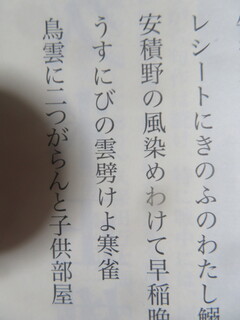 レシートにきのふのわたし鰯
安積野の風染めわけて早稲晩
うすにびの雲劈けよ寒雀
鳥雲に二つがらんと子供部屋